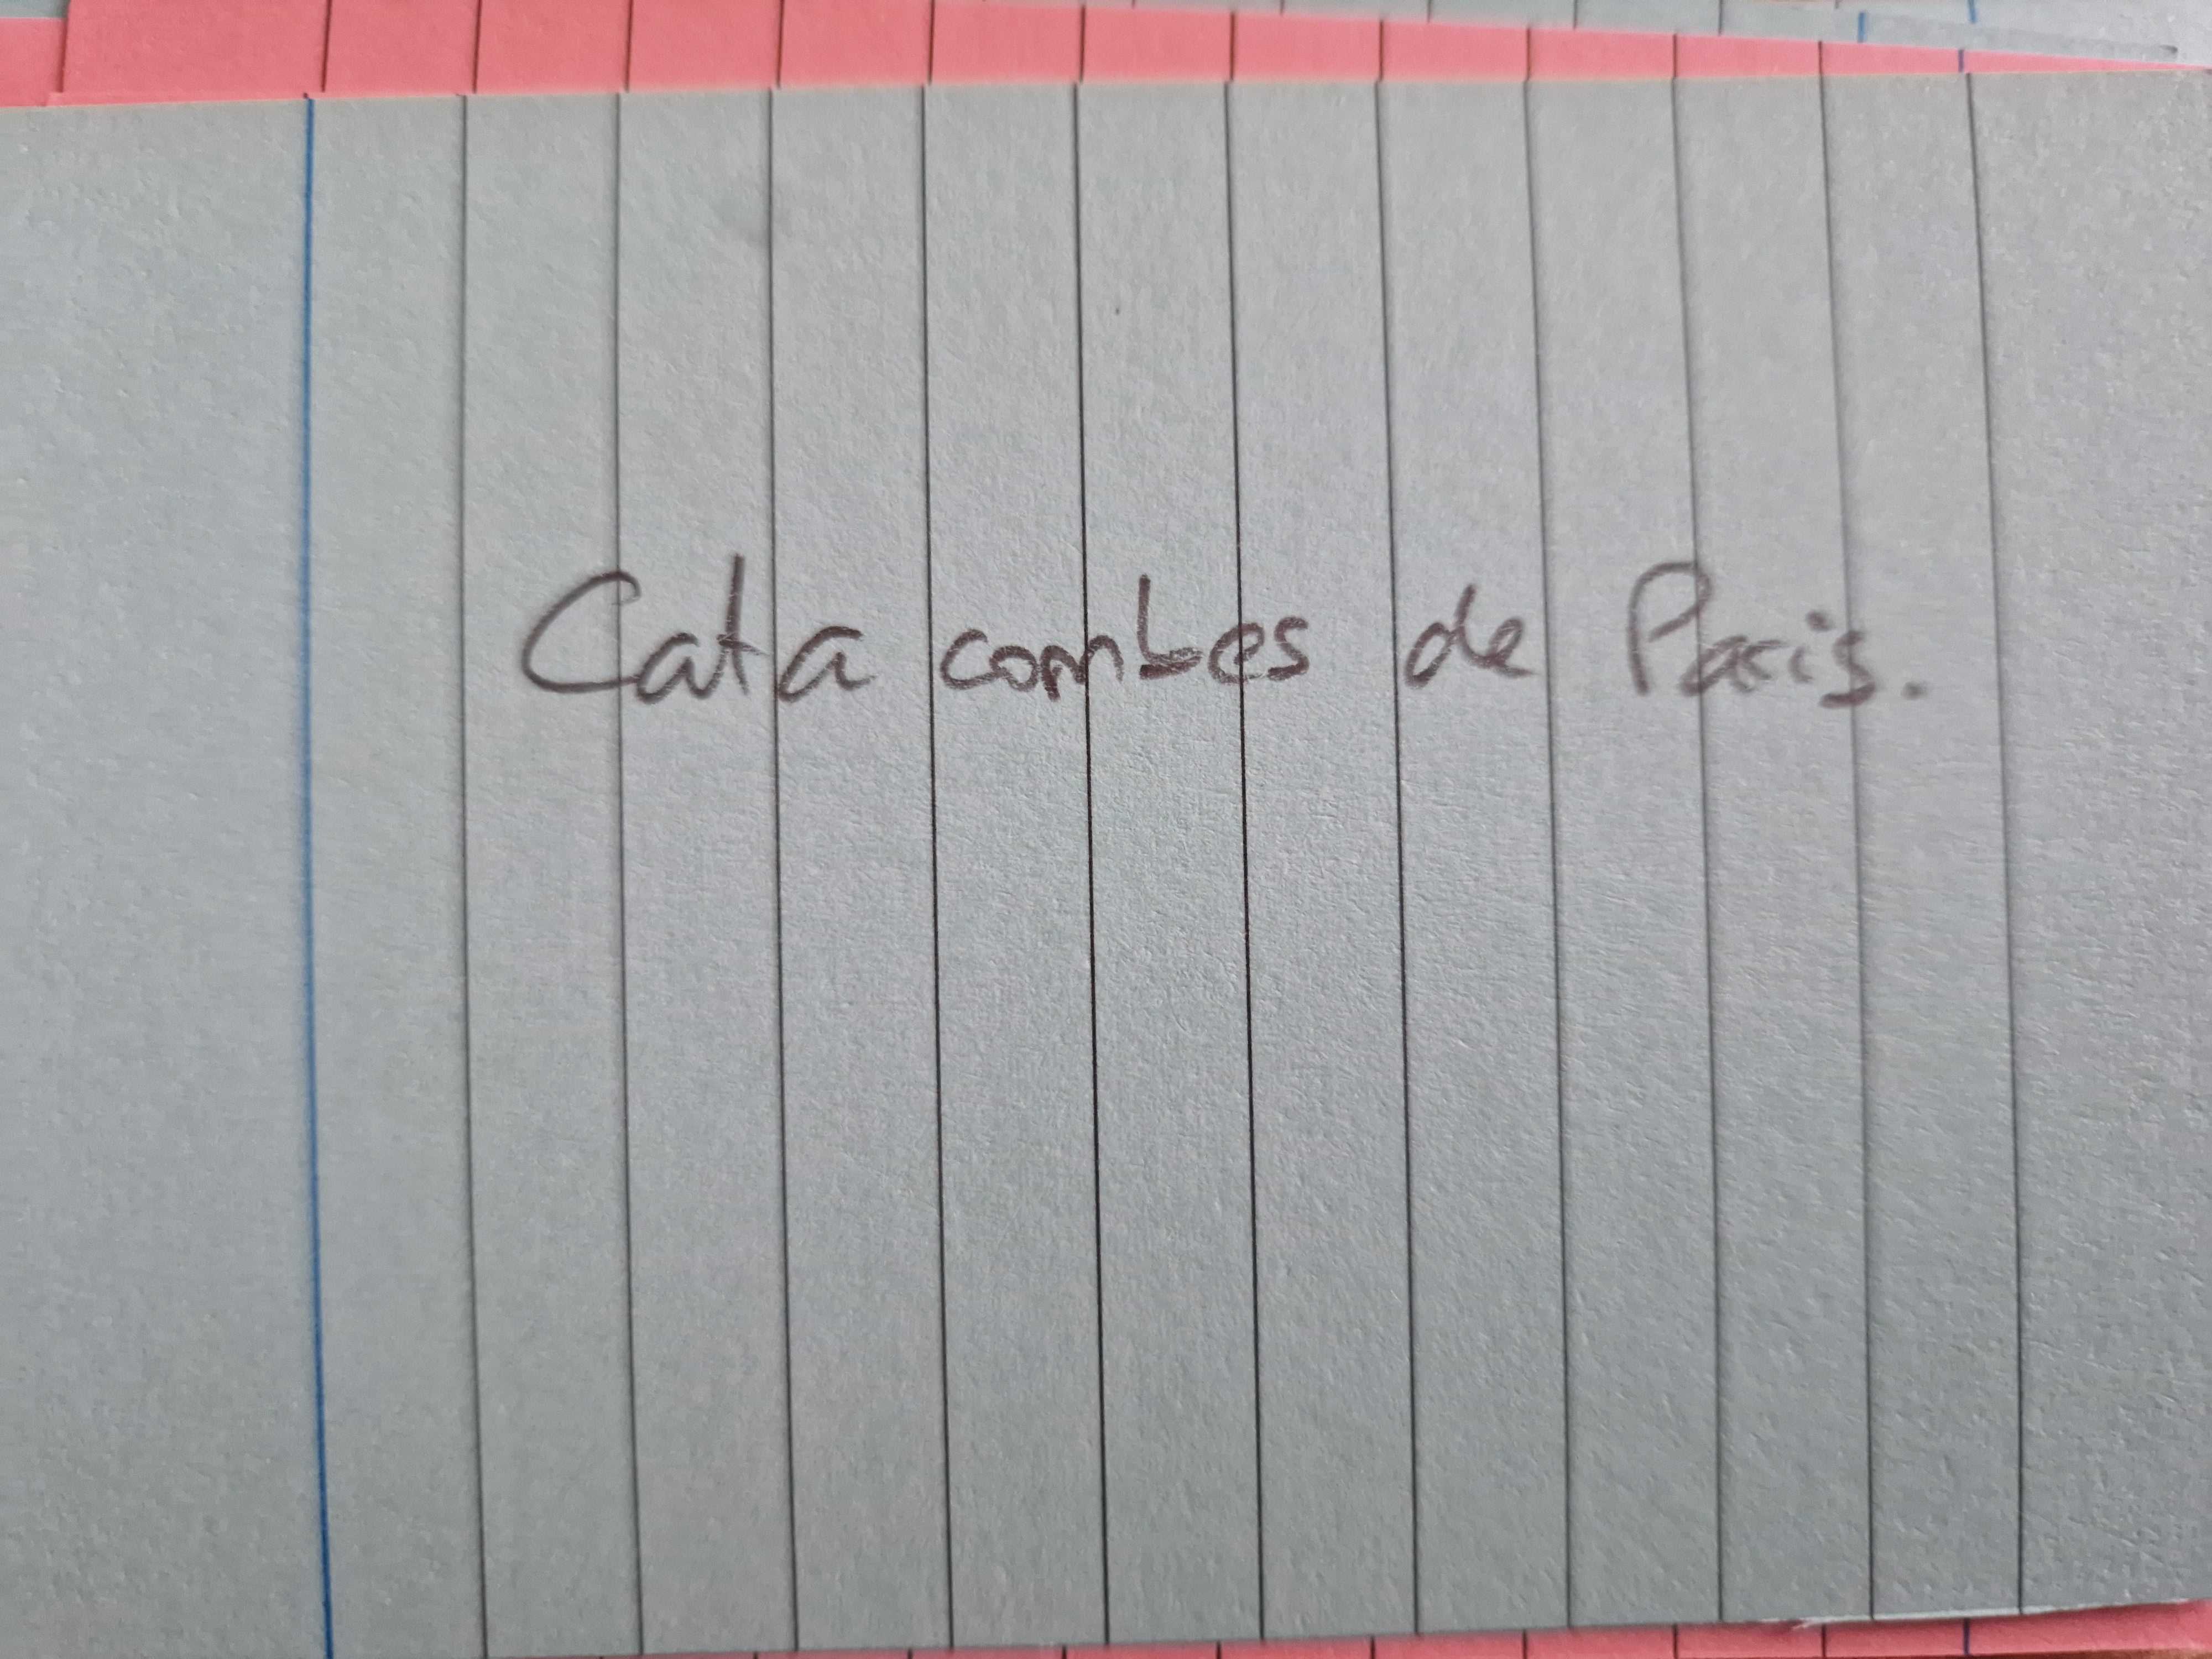 Catacombes de Paris.